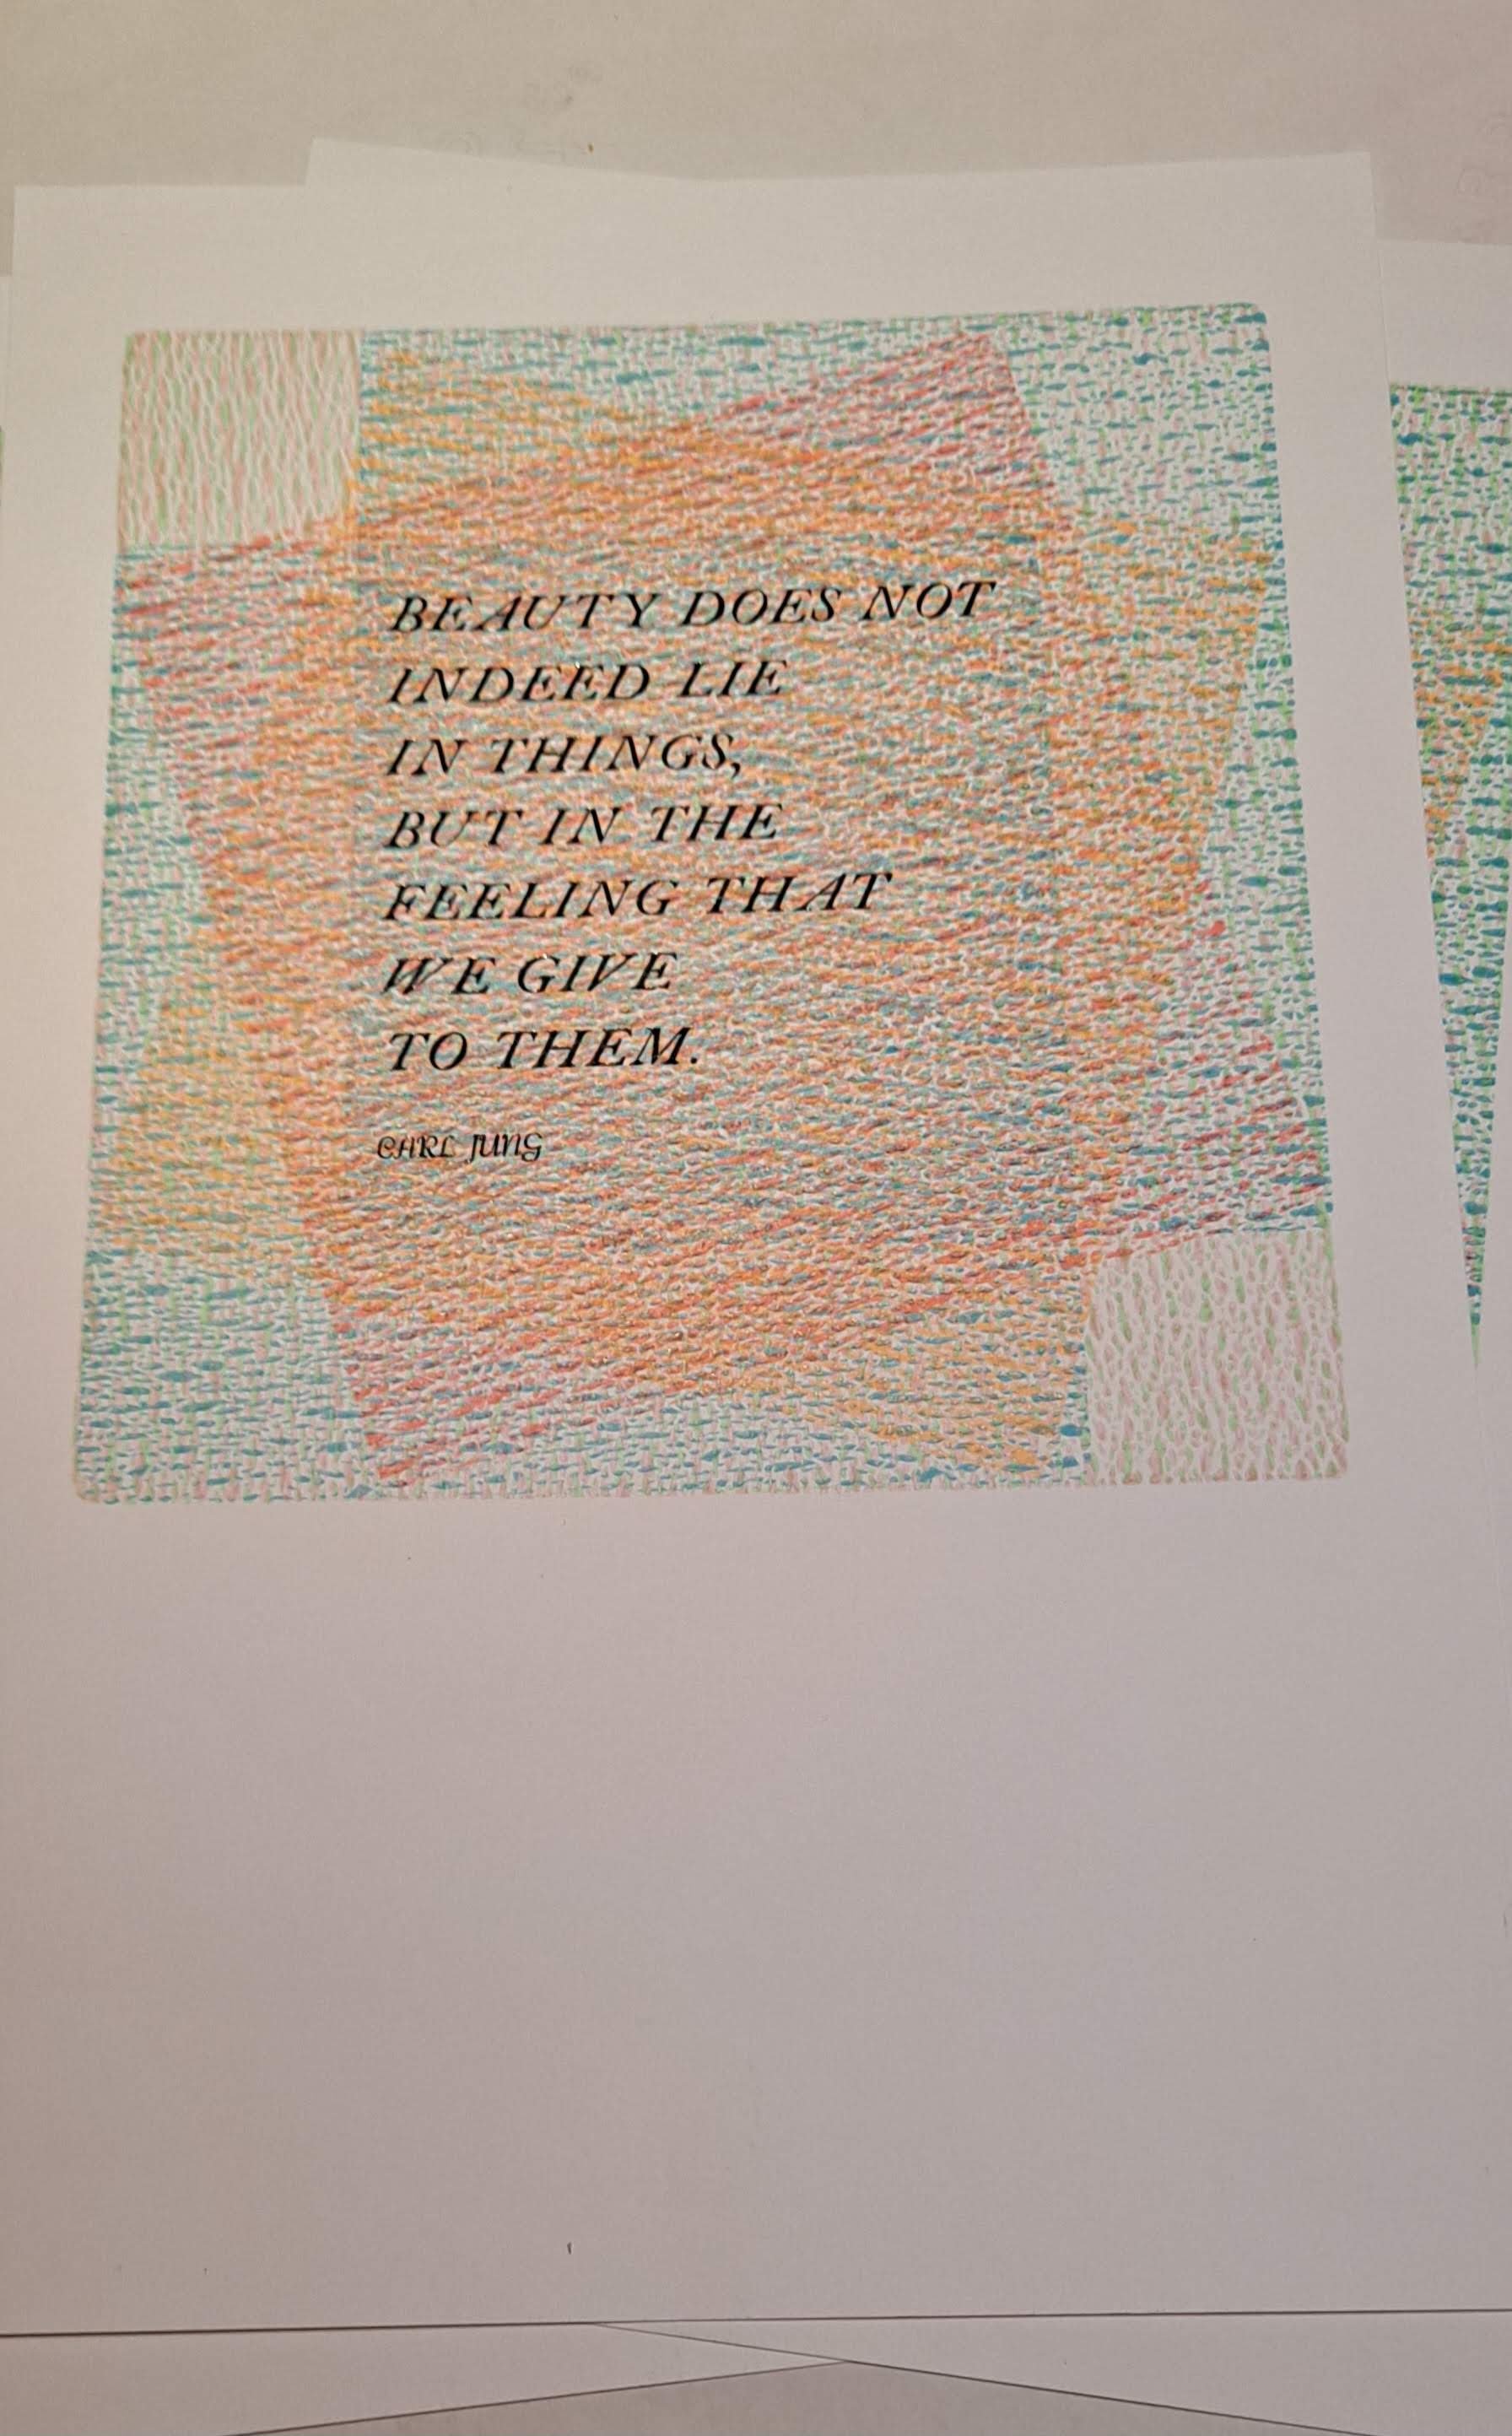 BEAUTY DOES NOT
INDEED LIE
IN THINGS,
BUT IN THE
FEELING THAT
WE GIVE
TO THEM.
CARL JUNG